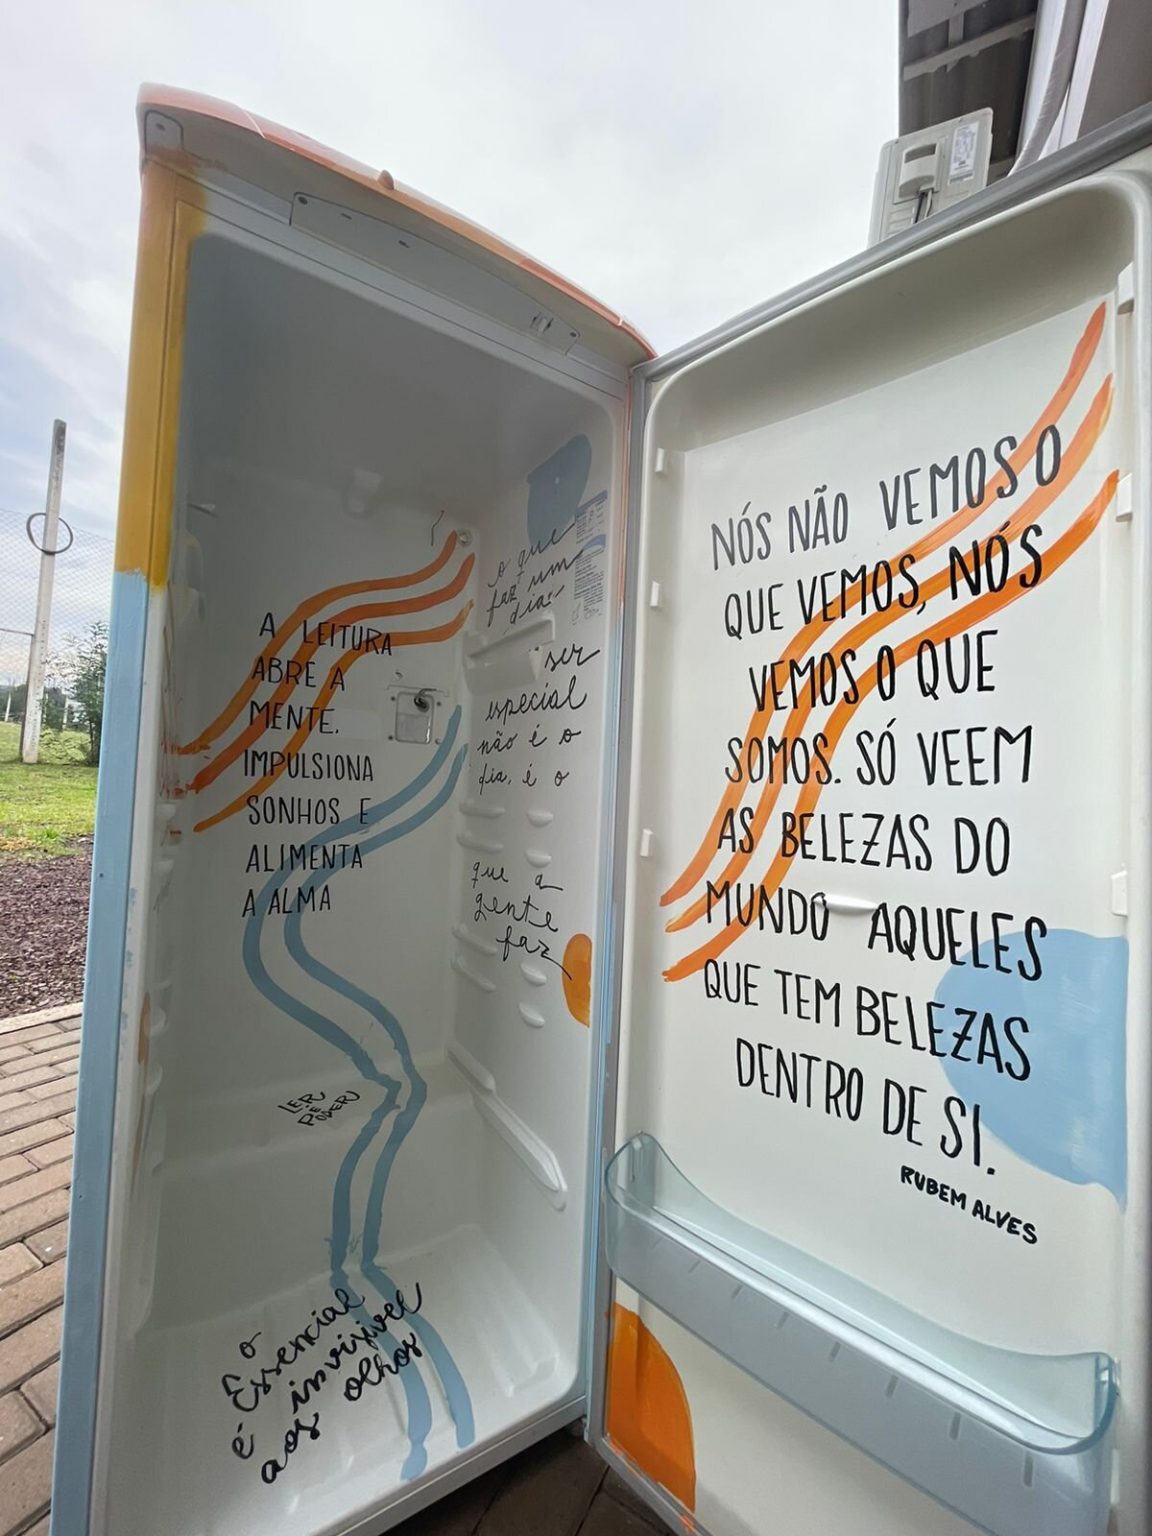 A LEITURA
ABRE A
MENTE,
IMPULSIONA
SONHOS E
ALIMENTA
A ALMA
LER
É
PODER
o
Essencial
é invizível
aos olhos
o que
faz um
dia
ser
especial
não é o
dia, é o
que a
gente
faz
NÓS NÃO VEMOS O
QUE VEMOS, NÓS
VEMOS O QUE
SOMOS. SÓ VEEM
AS BELEZAS DO
MUNDO AQUELES
QUE TEM BELEZAS
DENTRO DE SI.
RUBEM ALVES